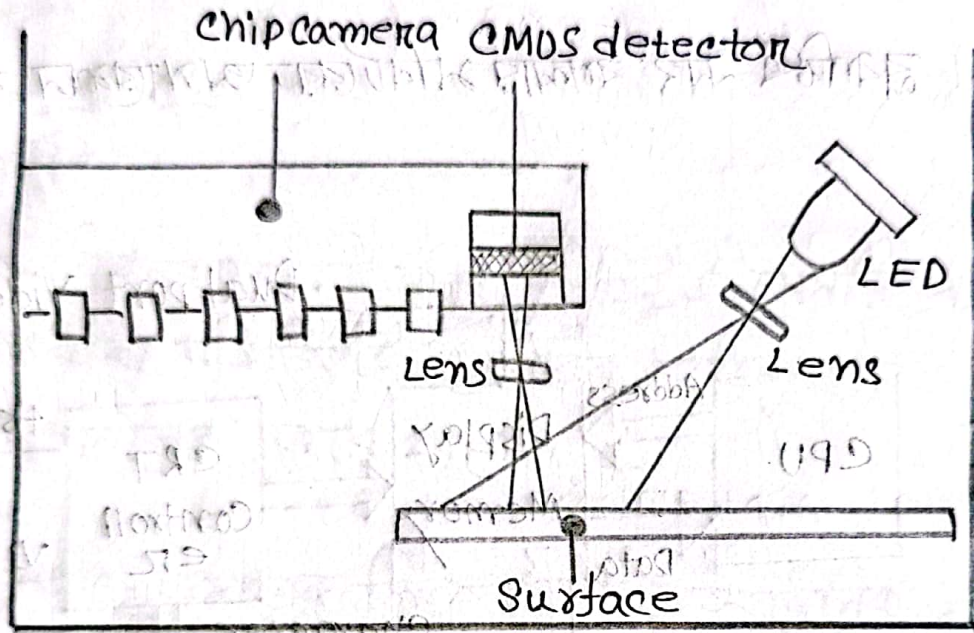 Chip camera CMOS detector
LED
Lens
Lens
Surface